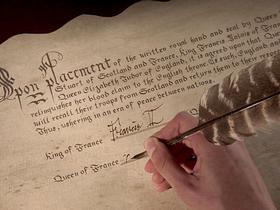 Upon placement of the written royal hand and seal by Queen
Stuart of Scotland and France, King Francis Valois of Fran
Queen Elizabeth Tudor of England, it is agreed upon that Que
relinquishes her blood claim to the English throne. As such, England
will recall their troops from Scotland and return them to their
Thus, ushering in an era of peace between nations.
King of France Francis II
Queen of France